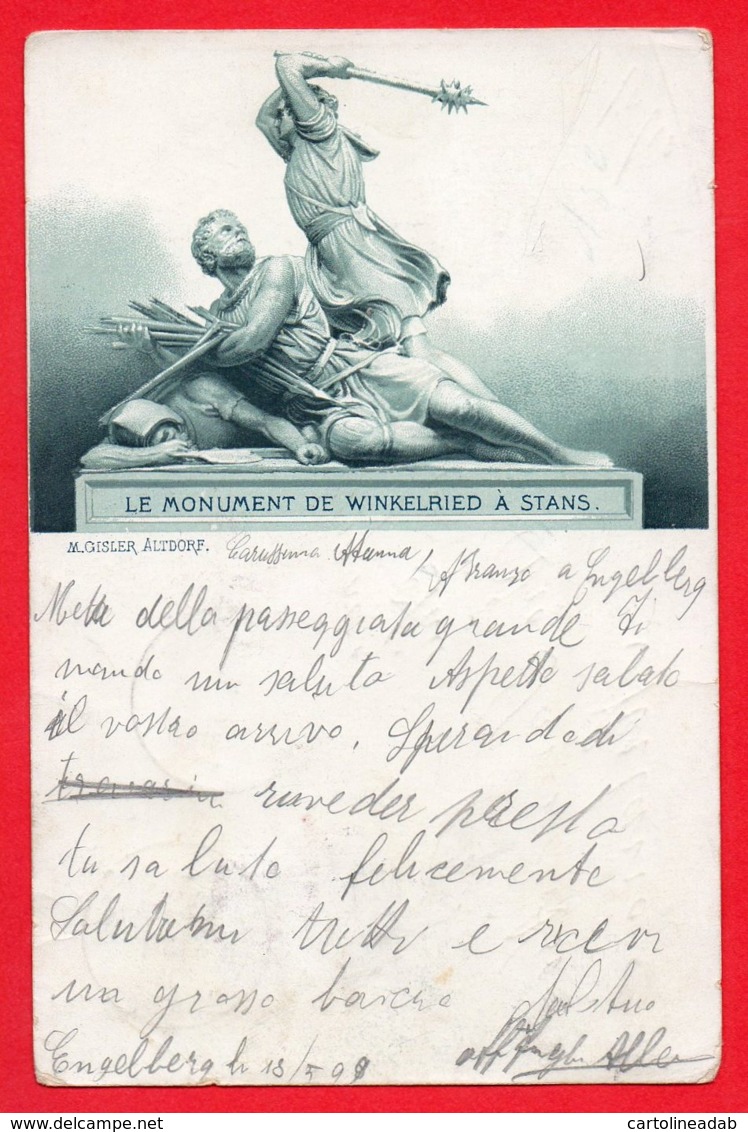 LE MONUMENT DE WINKELRIED À STANS.
M. GISLER ALTDORF.
Carissima Mamma
a Engelberg
Meta della passeggiata grande Ti
mando un saluto Aspetto sabato
il vostro arrivo. Sperando di
raveder presto
tu saluto felicemente
Salutami tutti e ricevi
un grosso bascio dal tuo
aff
Engelberg li 18/5 98
cartolineadab